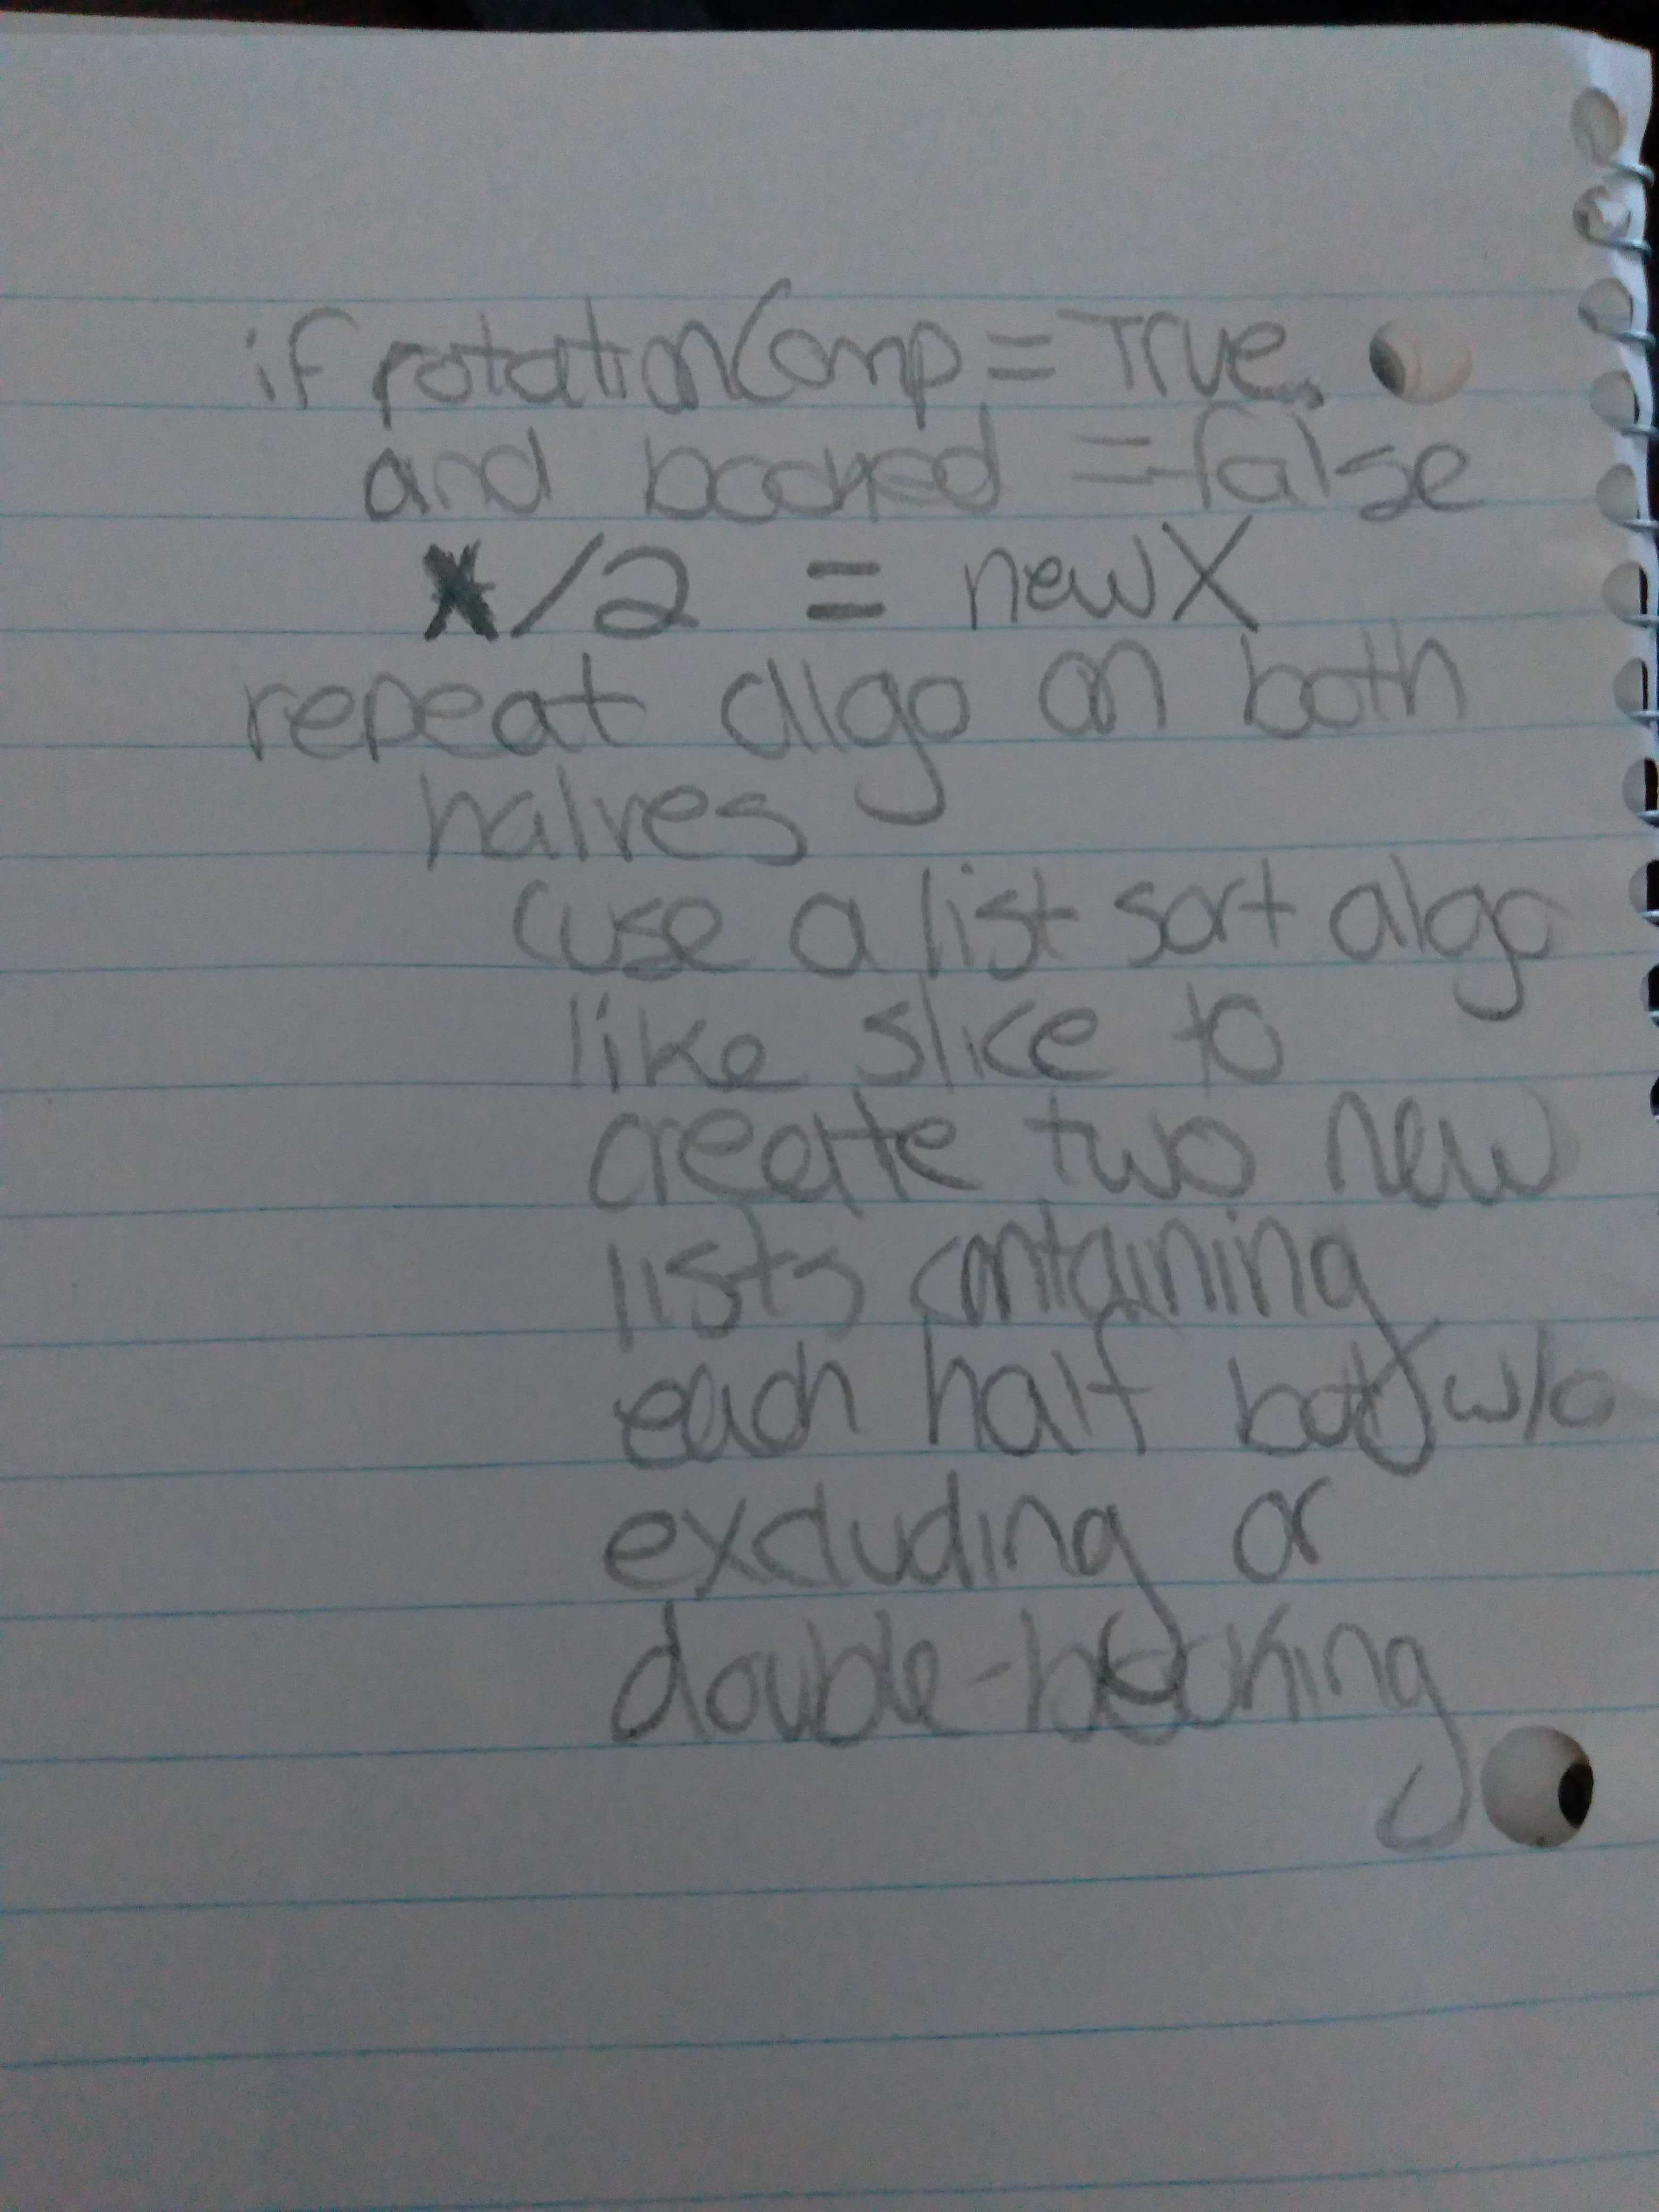 if rotationComp = True,
and booked = false
x/2 = newX
repeat algo on both
halves
(use a list sort algo
like slice to
create two new
lists containing
each half but w/o
excluding or
double-booking